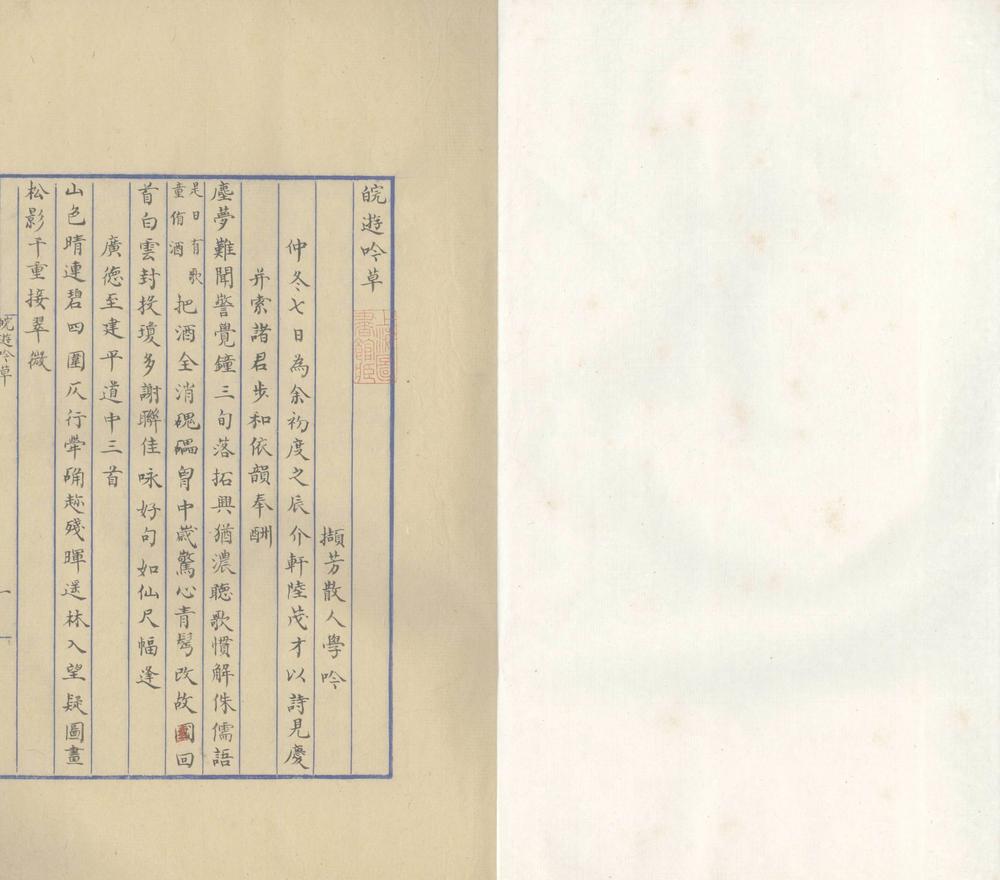 皖遊吟草
上海圖
書館藏
擷芳散人學吟
仲冬七日為余初度之辰介軒陸茂才以詩見慶
并索諸君步和依韻奉酬
塵夢難聞警覺鐘三旬落拓興猶濃聽歌慣解侏儒語
是日有歌
童侑酒
把酒全消磈礧胷中歲驚心青鬢改故國回
首白雲封投瓊多謝聯佳咏好句如仙尺幅逢
廣德至建平道中三首
山色晴連碧四圍仄行犖确趂殘暉遥林入望疑圖畫
松影千重接翠微
皖遊吟草
一